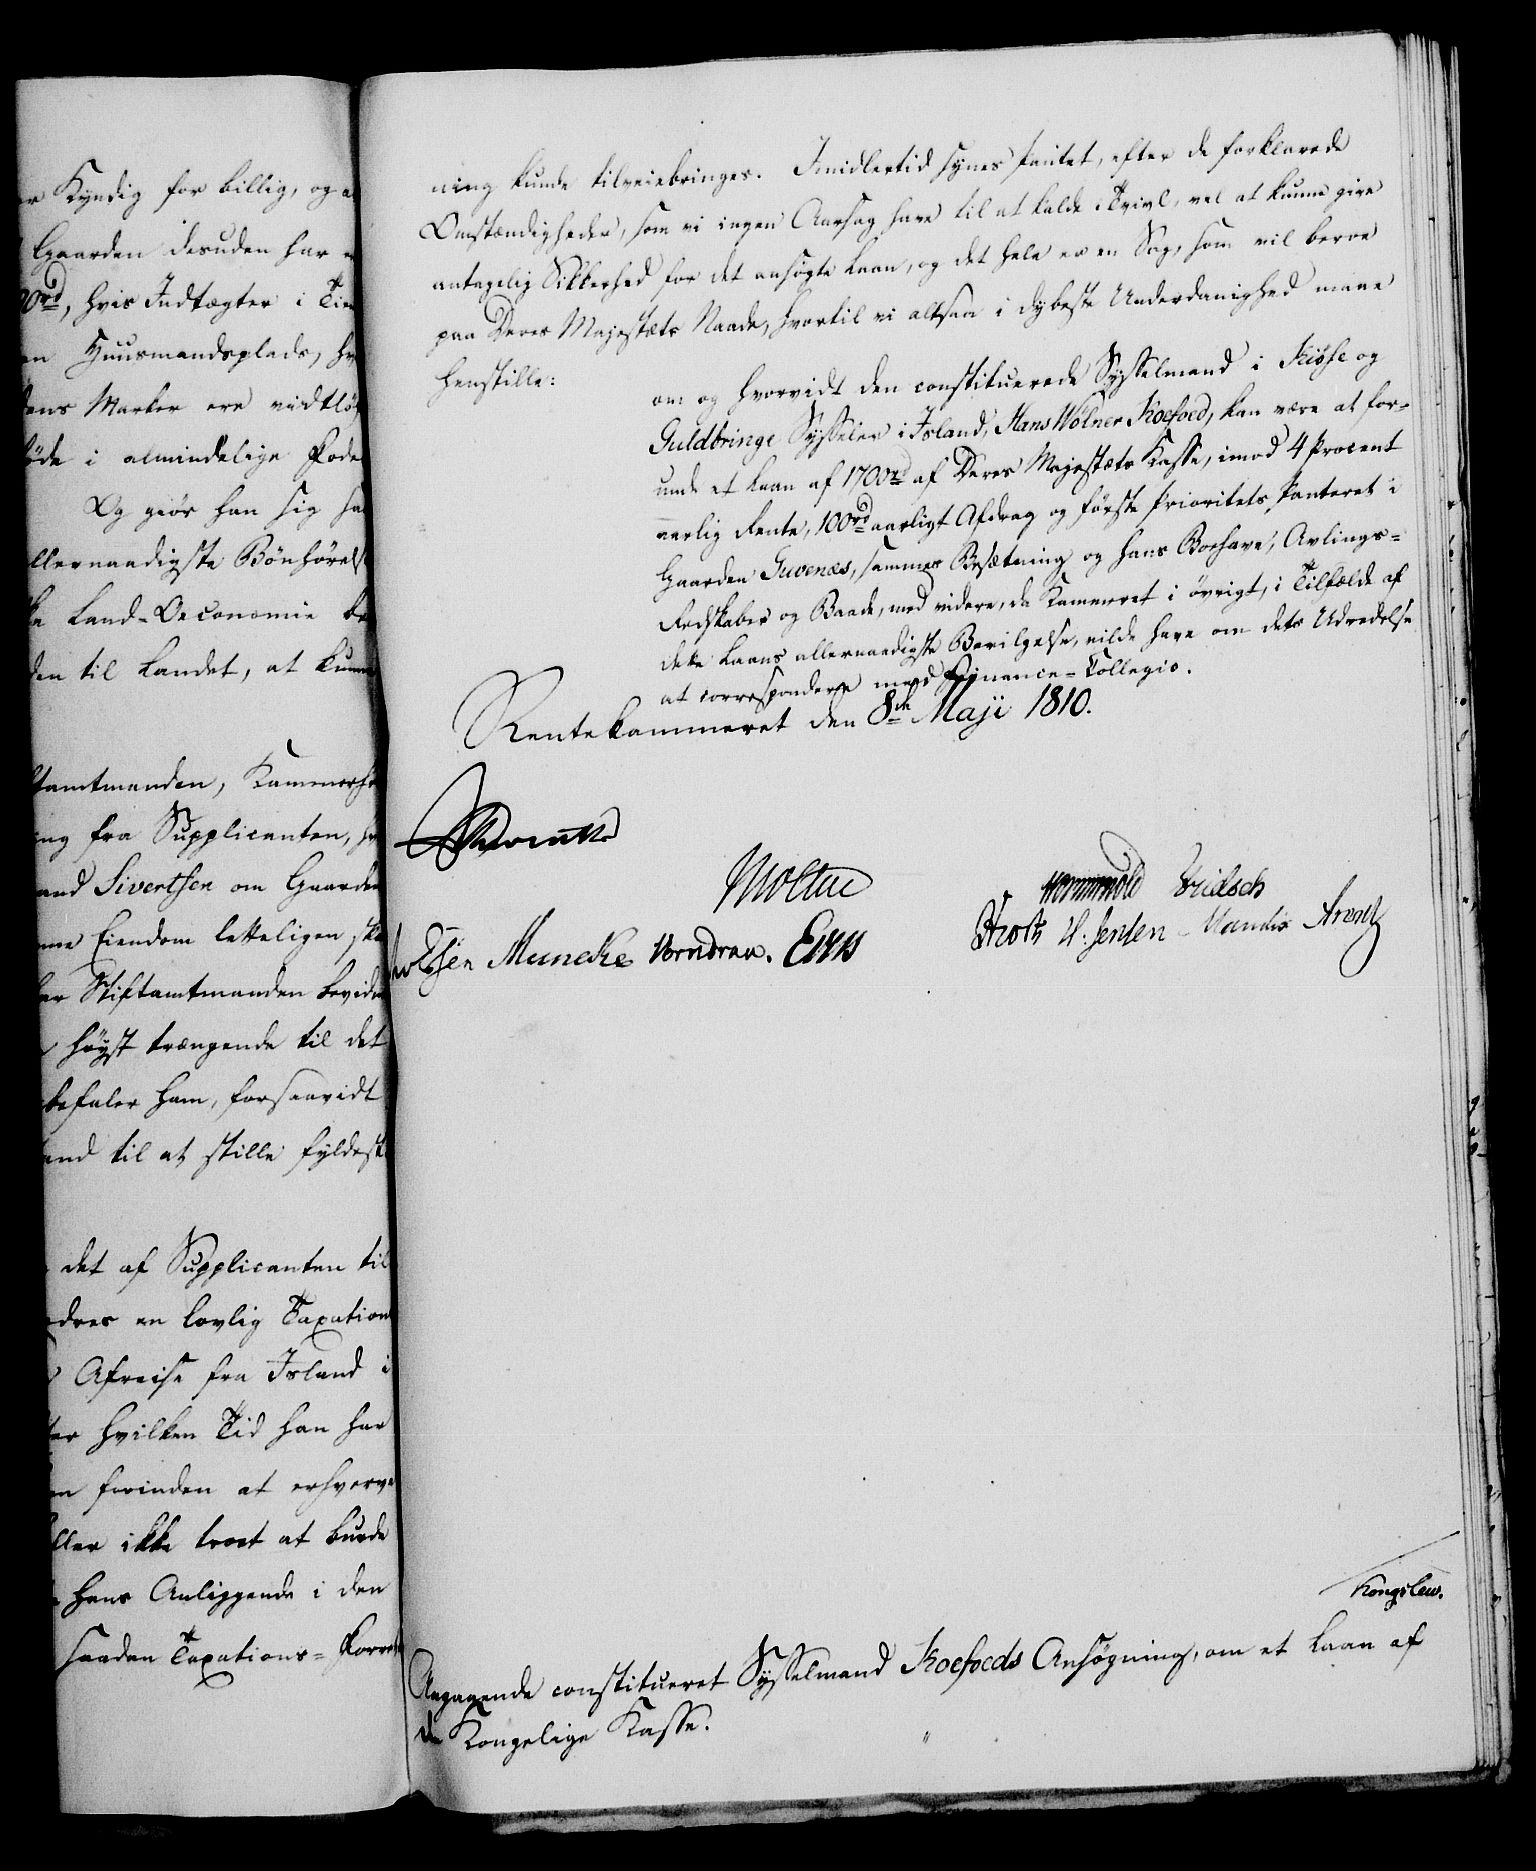 er Kyndig for billig, og a
Gaarden desuden har
00rd, hvis Indtægter i Tien
en Huusmandsplads, hv
dens Marker ere vidtlöf
öde i almindelige Fode
Og giör han sig
allernaadigste Bönhörels
Land-Oeconomie
den til Landet, at kunne
tamtmanden, Kammerh
ing fra Supplicanten,
and Sivertsen om Gaarden
nne Eiendom letteligen
har Stiftamtmanden bevid
höyst trængende til det
befaler ham, forsaavidt
and til at stille fyldest
det af Supplicanten til
dres en lovlig Taxation
Afreise fra Island i
ter hvilken Tid han har
en forinden at erhverve
eller ikke troet at burde
hans Anliggende i den
saadan Taxations-Forre
ning kunde tilveiebringes. Imidlertid synes Pantet, efter de forklarede
Omstændigheder, som vi ingen Aarsag have til at kalde i Tvivl, vel at kunne give
antagelig Sikkerhed for det ansögte Laan, og det hele er en Sag, som vil beroe
paa Deres Majestæts Naade, hvortil vi altsaa i dybeste Underdanighed maae
henstille:
om og hvorvidt den constituerede Sysselmand i Kiöse og
Guldbringe Sysseler i Island, Hans Wölner Koefoed, kan være at for-
unde et Laan af 1700rd af Deres Majestæts Kasse, imod 4 Procent
aarlig Rente, 100rd aarligt Afdrag og förste Prioritets Panteret i
Gaarden Guvenæs, sammes Besætning og hans Boehave, Avlings-
Redskaber og Baade, med videre, da Kammeret i övrigt, i Tilfælde af
dette Laans allernaadigste Bevilgelse, vilde have om dets Udredelse
at correspondere med Finance-Collegio.
Rentekammeret den 8de Maji 1810.
Moltke
Wormskiold Fridsch
Muncke Vorndran. H. Jensen Arentz
Kongslew.
Angagende constitueret Sysselmand Koefoeds Ansögning, om et Laan af
den Kongelige Kasse.